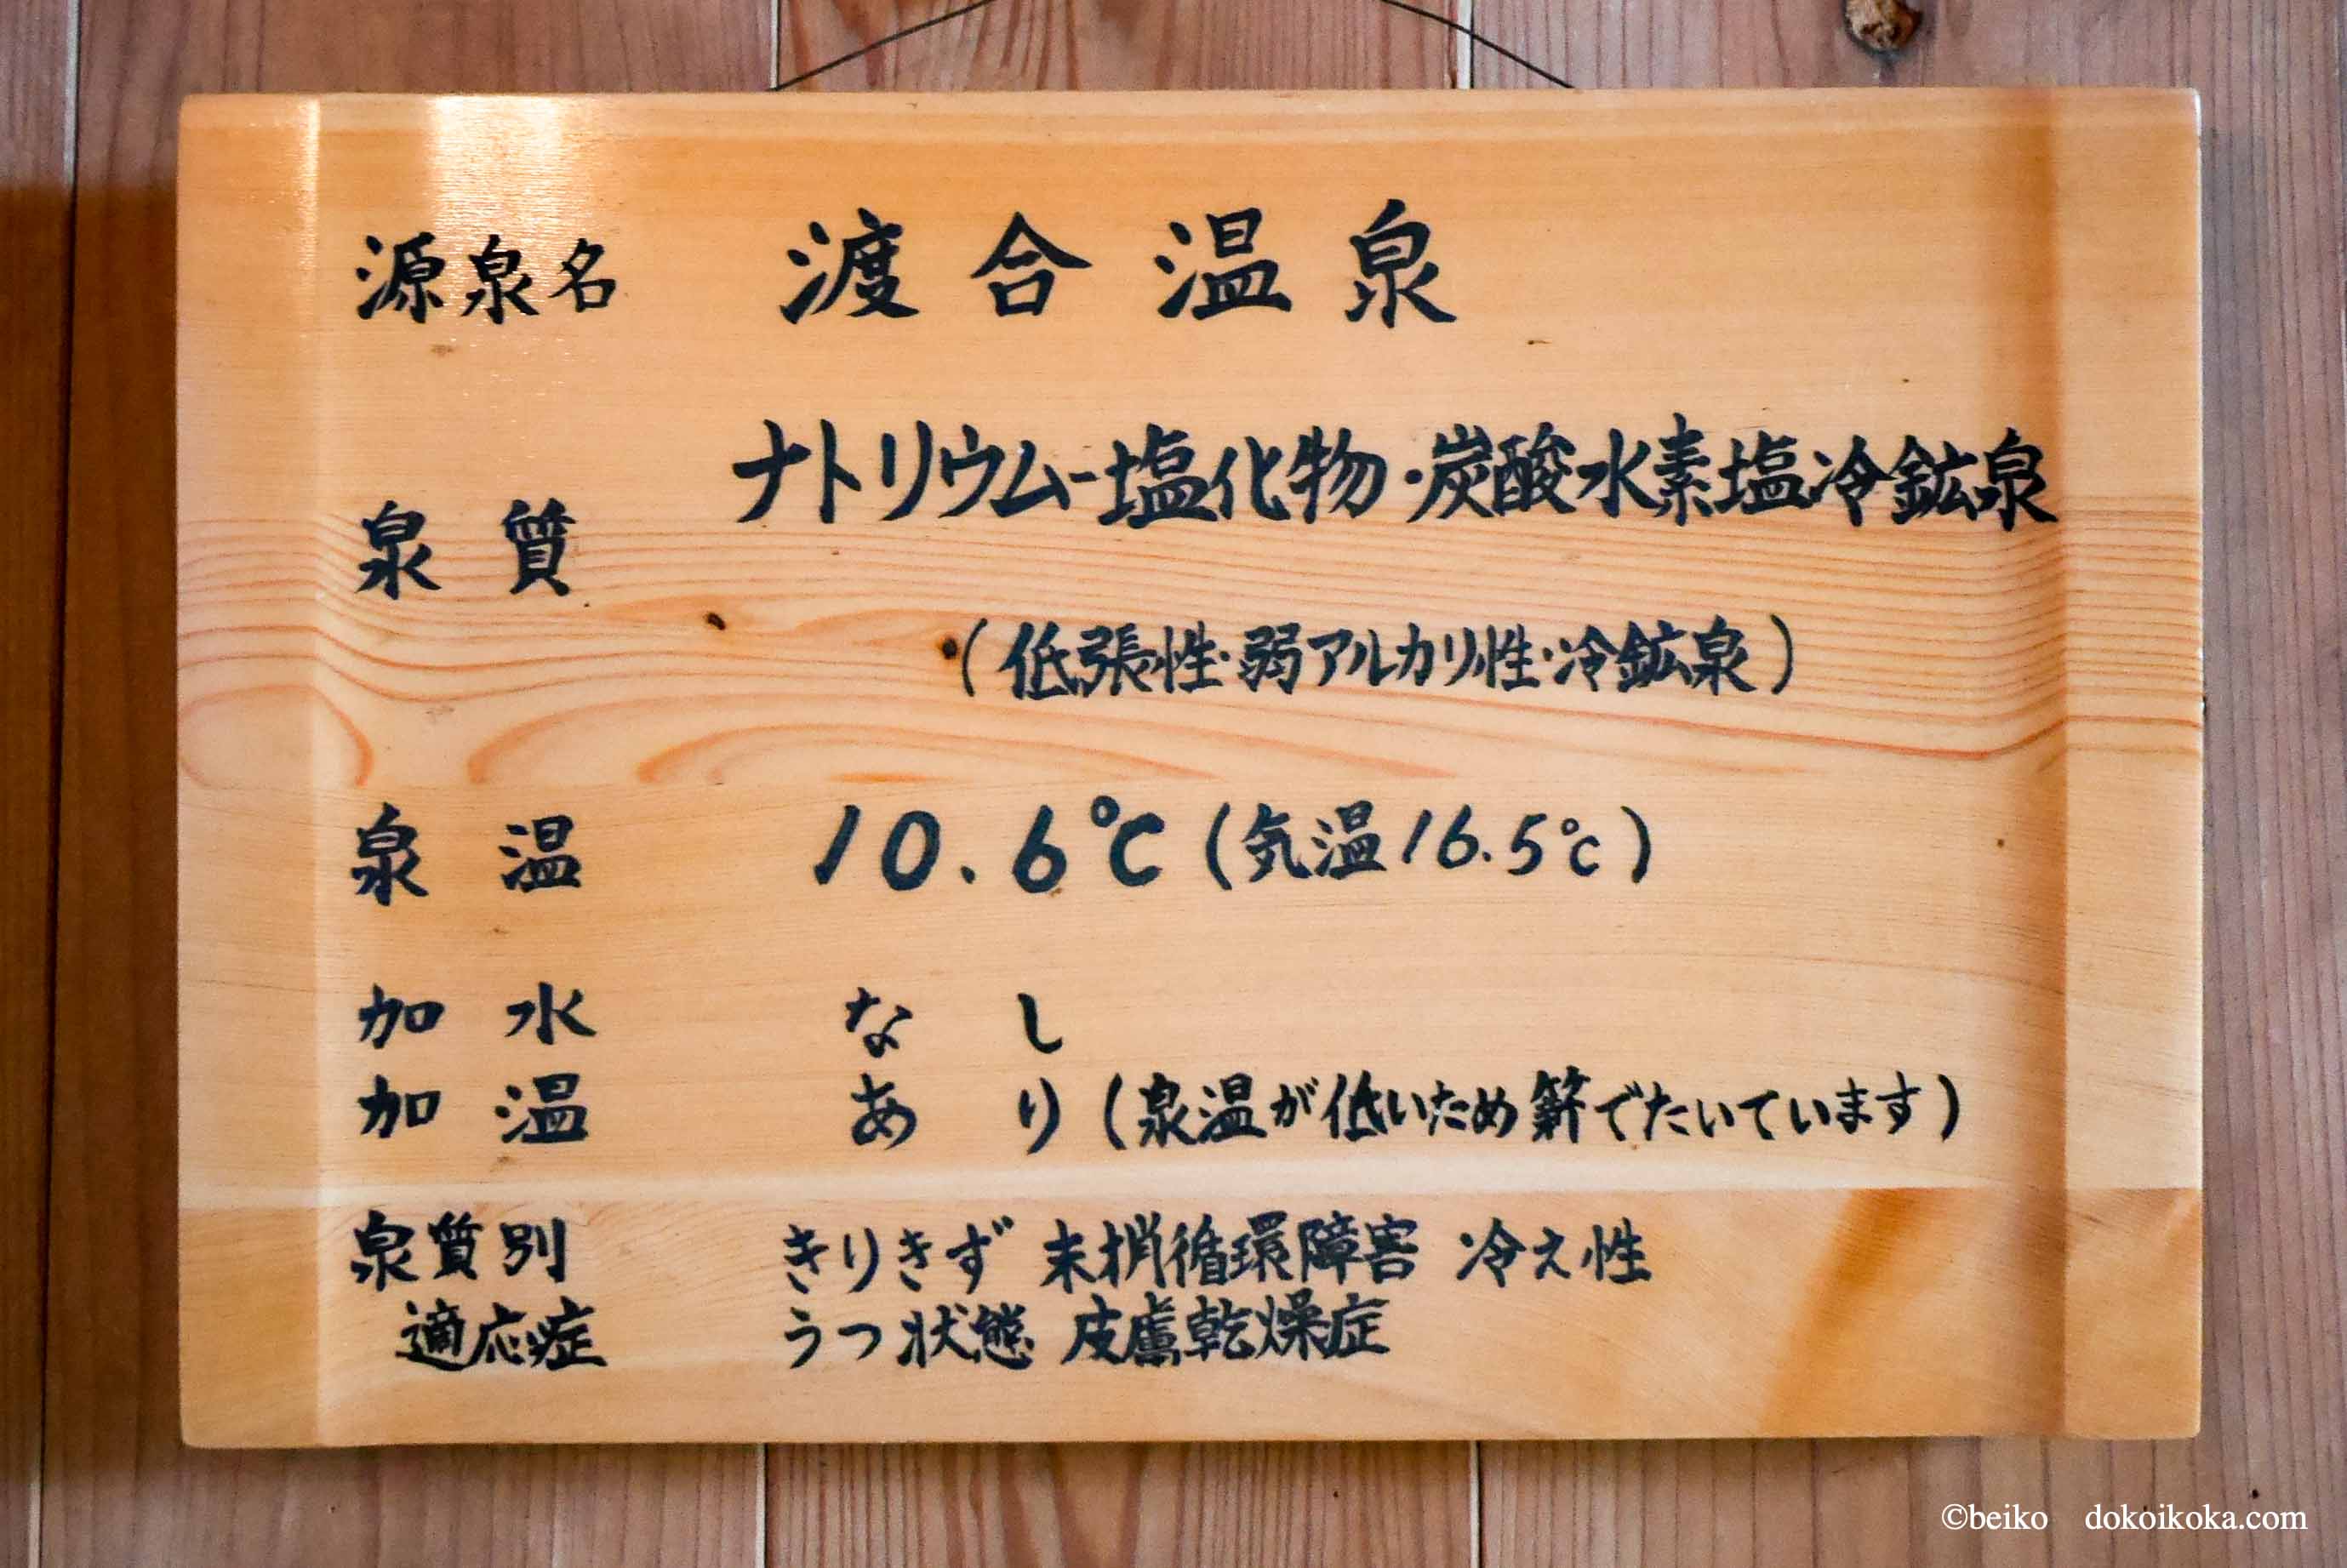 源泉名 渡合温泉
泉質 ナトリウム-塩化物・炭酸水素塩冷鉱泉
(低張性・弱アルカリ性・冷鉱泉)
泉温 10.6℃(気温16.5℃)
加水 なし
加温 あり(泉温が低いため薪でたいています)
泉質別 きりきず 末梢循環障害 冷え性
適応症 うつ状態 皮膚乾燥症
©beiko dokoikoka.com